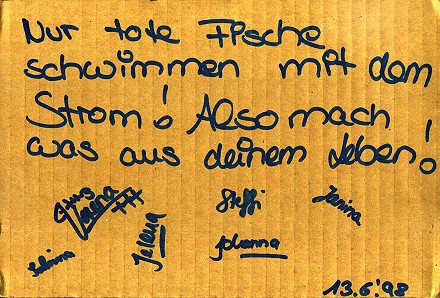 Nur tote Fische
schwimmen mit dem
Strom! Also mach
was aus deinem Leben!
Verena
Steffi
Janina
Jelena
Johanna
Sabrina
13.6.'98